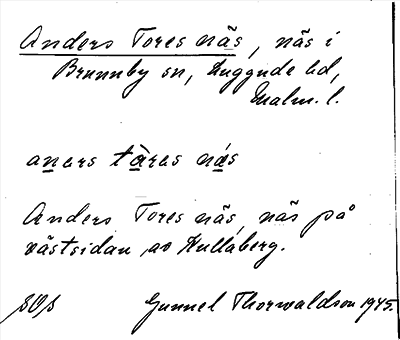 Anders Tores näs, näs i
Brunnby sn, Luggude hd,
Malm. l.
aners tàres nás
Anders Tores näs, näs på
västsidan av Kullaberg.
SOS Gunnel Thorwaldson 1945.